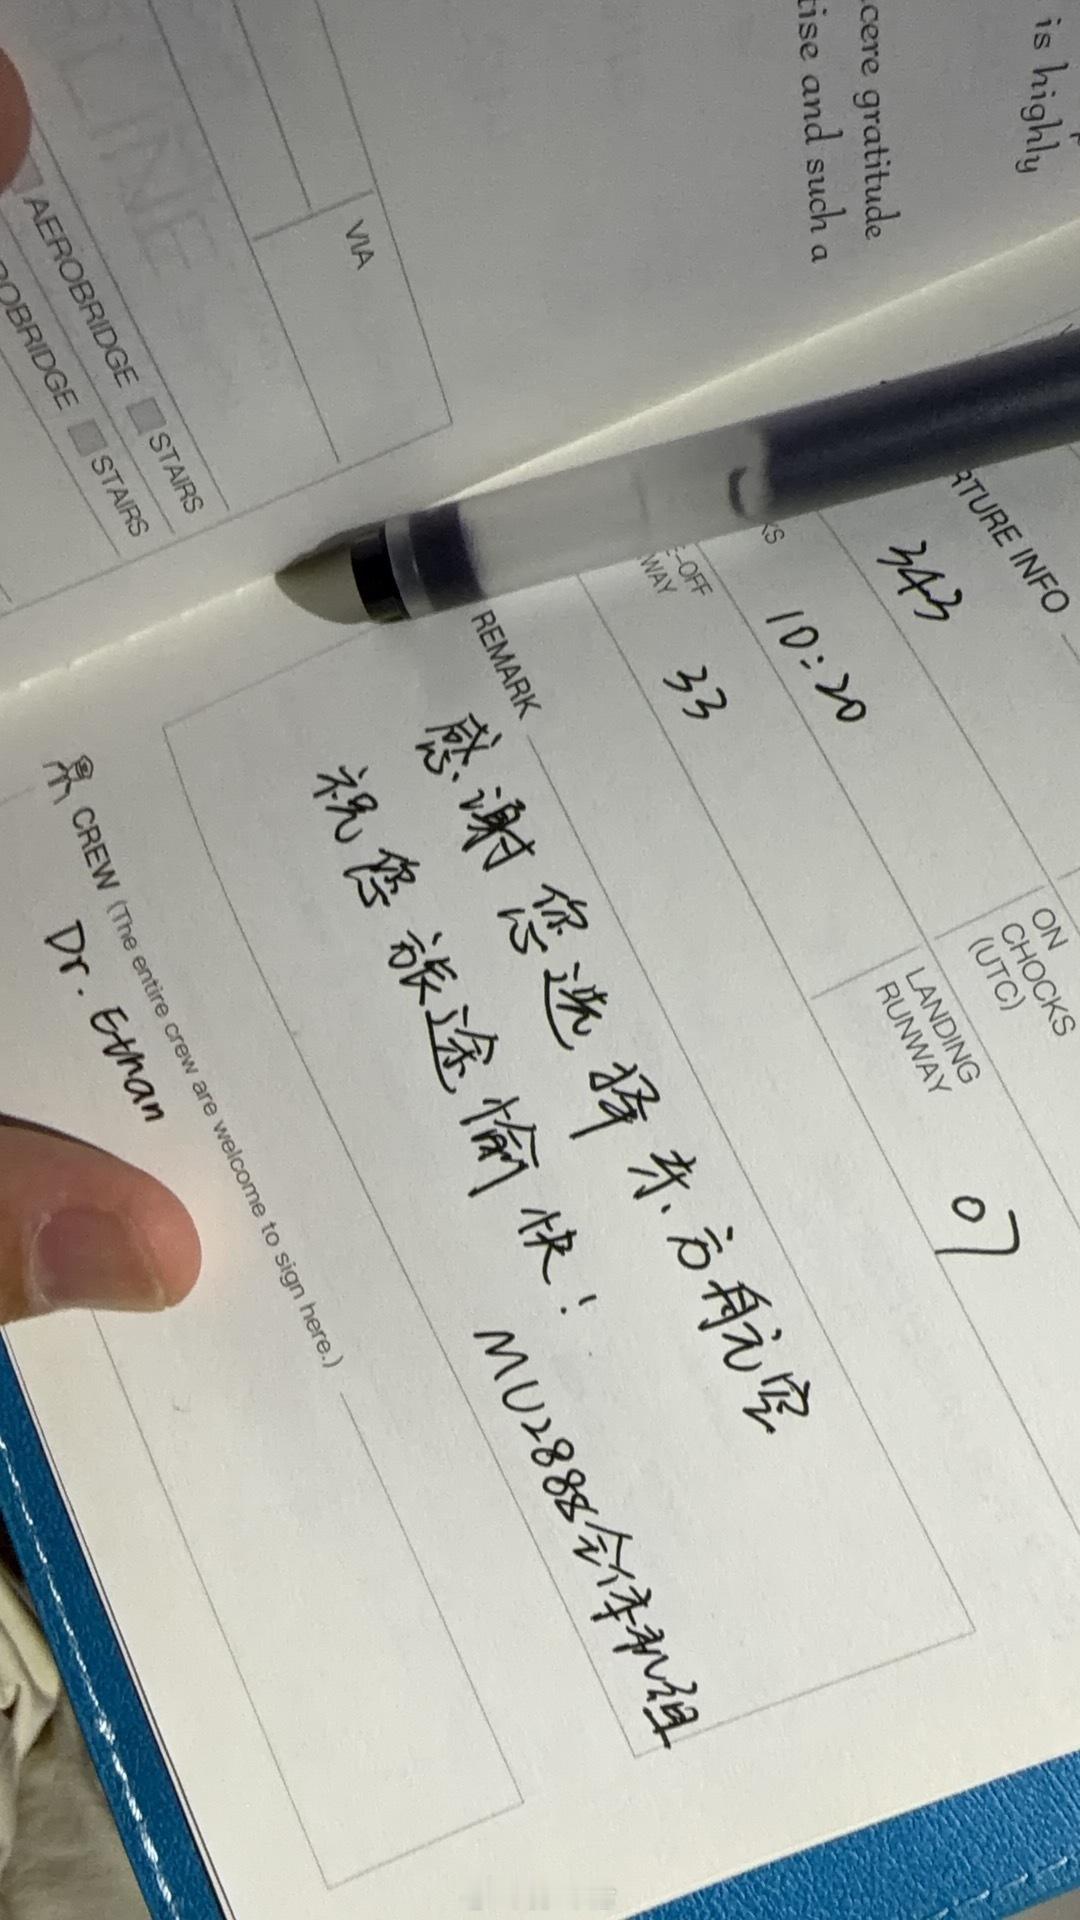 is highly
cere gratitude
tise and such a
VIA
AEROBRIDGE STAIRS
OBRIDGE STAIRS
RTURE INFO
343
KS
10:20
ON CHOCKS (UTC)
-OFF
WAY
33
LANDING RUNWAY
07
REMARK
感谢您选择东方航空
祝您旅途愉快!
MU2888全体机组
CREW (The entire crew are welcome to sign here.)
Dr. Ethan